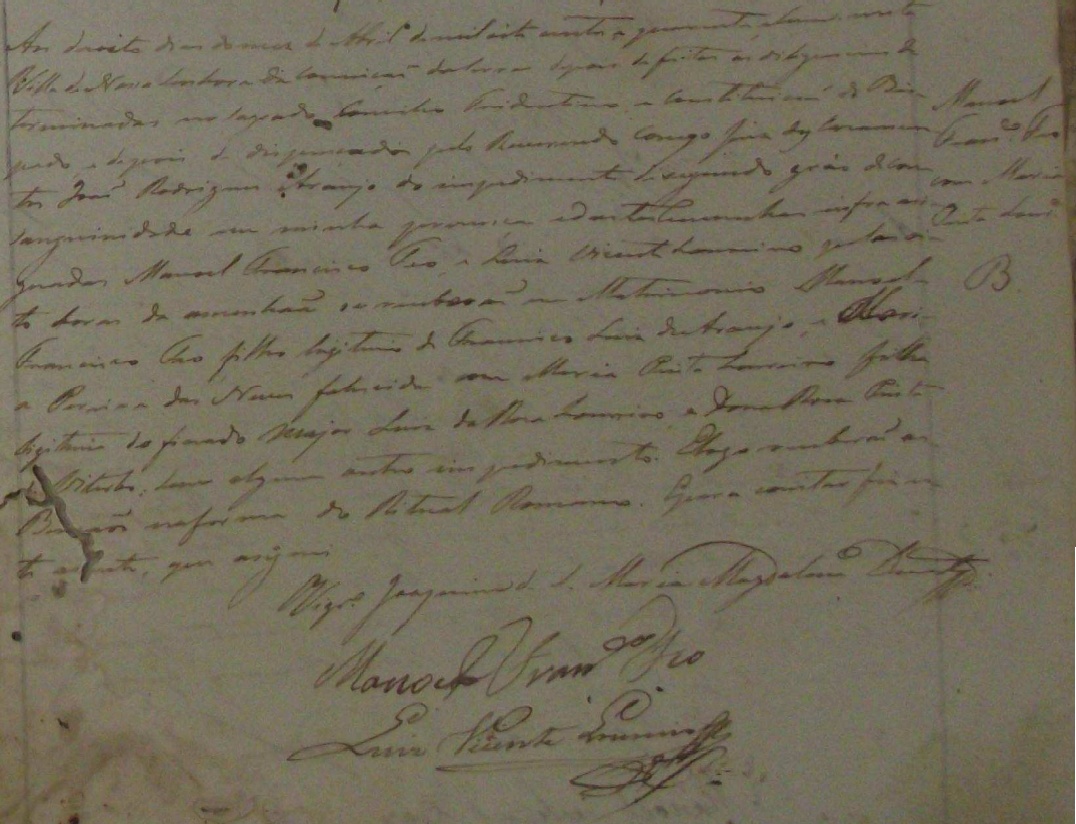 Aos dezoito dias do mez de Abril de mil oito centos e quarenta e hum nesta
Villa de Nossa Senhora da Conceiçaõ da depois de feitas as diligencias de
terminadas no Sagrado Concilio Tridentino e Constituiçaõ do Bis
pado e depois de dispensados pelo Reverendo Conego
tos José Rodrigues Araujo do impedimento de segundo gráo de con
sanguinidade em minha prezença e das testemunhas infra assi
gnadas Manoel Francisco Teo, e Luiz Vicente Loureiro pelas oi
to horas da manhaã se receberaõ em Matrimonio Manoel
Francisco Teo filho legitimo de Francisco Luiz de Araujo, e Mari
a Pereira das Neves falecida com Maria Pinto Loureiro filha
legitima do finado Major Luiz da Roza Loureiro e Dona Roza Pinto
sem algum outro impedimento. E logo receberaõ as
Bençaõs na forma do Ritual Romano. E para constar fiz es
te assento, que asignei
Vigr.º Joaquim de S. Maria Magdalena
Manoel Fran.co Teo
Luiz Vicente Loureiro
Manoel
Fran.co Teo
com Maria
Pinto Lour.º
B.